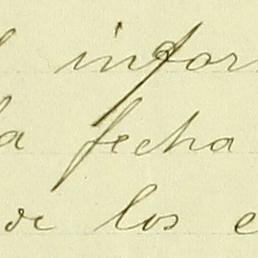 l infor
la fecha
de los e